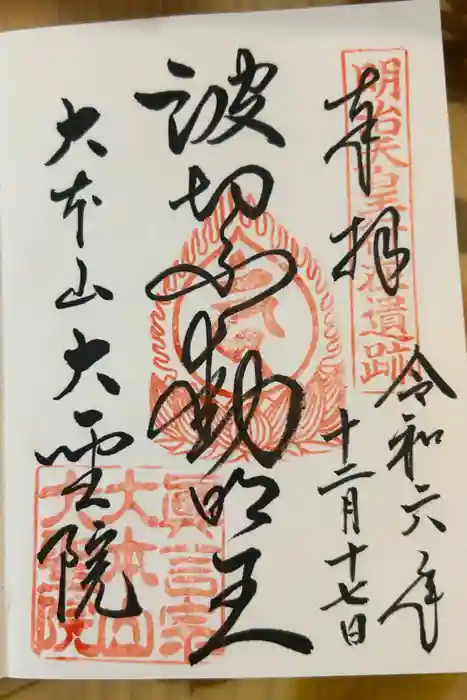 奉拝
明治天皇
遺跡
令和六年
十二月十七日
波切不動明王
大本山大聖院
眞言宗
大本山
大聖院